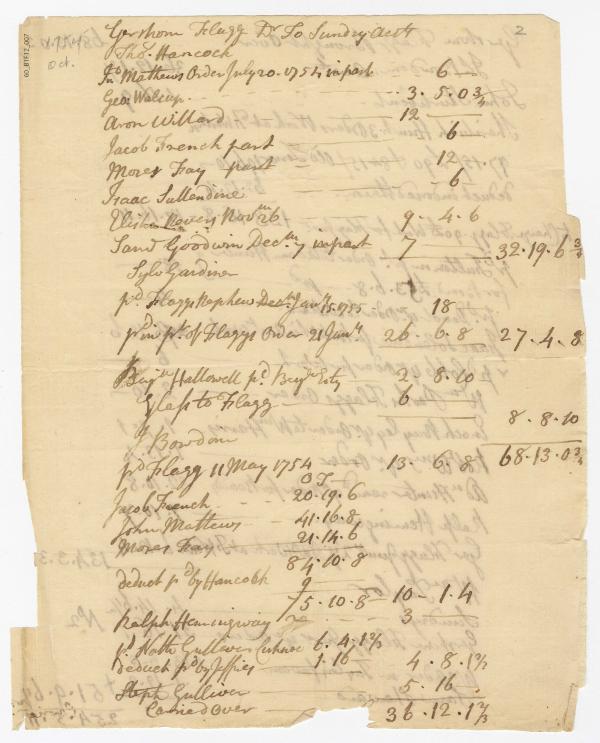 Gershom Flagg Dr To Sundry Acts
2
Oct.
Thos. Hancock
Jno Mathews Order July 20. 1754 in part 6 —
Geo Walcup 3. 5. 0 3/4
Aron Willard 12
Jacob French part 6
Moses Fay part 12.
Isaac Sullendine 6
Elisha Nevers Novm 26 9. 4. 6
Saml Goodwin Decm 7 in part 7 32. 19. 6 3/4
Sylv Gardiner
pd. Flaggs Nephew Jany 15. 1755 18
pd in pt. of Flaggs Order 21 Jany 26. 6. 8 27. 4. 8
Benjn Hallowell pd. Benjn Esty 2. 8. 10
Glass to Flagg 6
8. 8. 10
J Bowdoin
pd Flagg 11 May 1754 13. 6. 8 68. 13. 0 3/4
O T
Jacob French 20. 19. 6
John Mathews 41. 16. 8
Moses Fay 21. 14. 6
84. 10. 8
deduct pd by Hancock 9
75. 10. 8 — 10 — 1. 4
Ralph Hemingway 3
pd. Nathl Gulliver 6. 4. 1 1/3
deduct pd by Jeffries 1. 16 4. 8. 1 1/3
Steph Gulliver 5. 16
Carried Over 36. 12. 1 1/3
60_B1F12_007